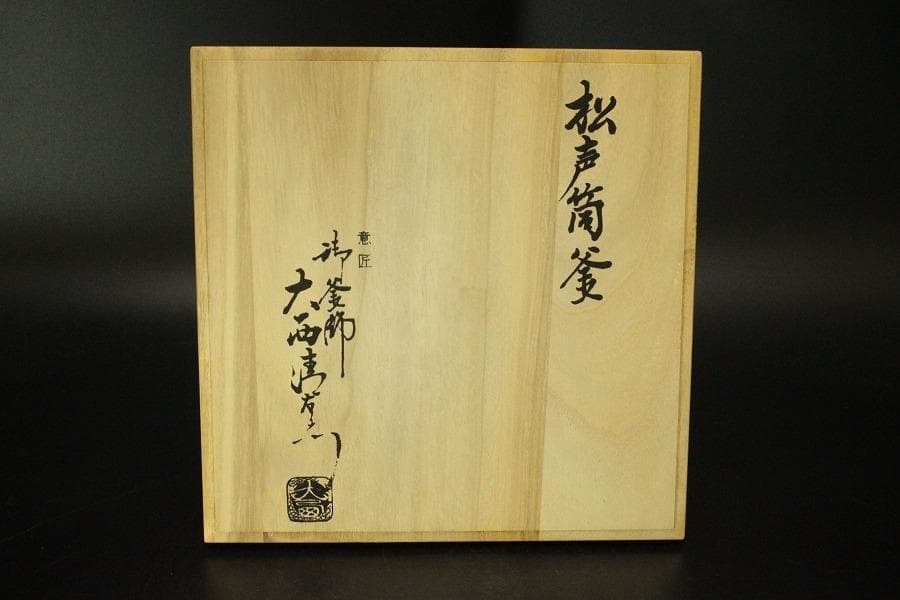 松声筒釜
意匠
御釜師
大西清右衛門
大西